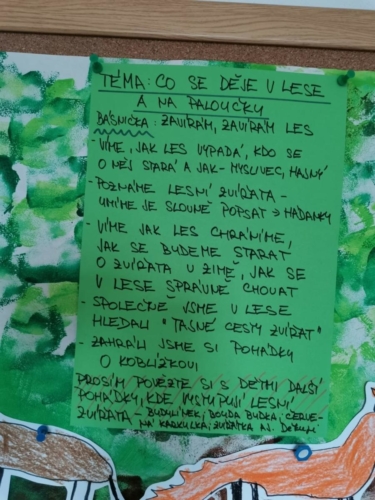 TÉMA: CO SE DĚJE V LESE
A NA PALOUČKU
BÁSNIČKA: ZAVÍRÁM, ZAVÍRÁM LES
- VÍME, JAK LES VYPADÁ, KDO SE
O NĚJ STARÁ A JAK - MYSLIVEC, HAJNÝ
- POZNÁME LESNÍ ZVÍŘATA -
UMÍME JE SLOVNĚ POPSAT → HÁDANKY
- VÍME JAK LES CHRÁNÍME,
JAK SE BUDEME STARAT
O ZVÍŘATA V ZIMĚ, JAK SE
V LESE SPRÁVNĚ CHOVAT
- SPOLEČNĚ JSME V LESE
HLEDALI "TAJNÉ CESTY ZVÍŘAT"
- ZAHRÁLI JSME SI POHÁDKY
O KOBLÍŽKOVI
PROSÍM POVĚZTE SI S DĚTMI DALŠÍ
POHÁDKY, KDE VYSTUPUJÍ LESNÍ
ZVÍŘATA - BUDULÍNEK, BOUDA BUDKA, ČERVE-
NÁ KARKULKA, ZVÍŘÁTKA A